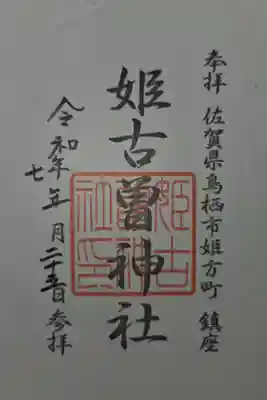 奉拝 佐賀県鳥栖市姫方町 鎮座
姫古曽神社
姫古曽神社印
令和七年 月二十五日参拝